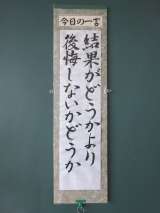 今日の一言
結果がどうかより
後悔しないかどうか